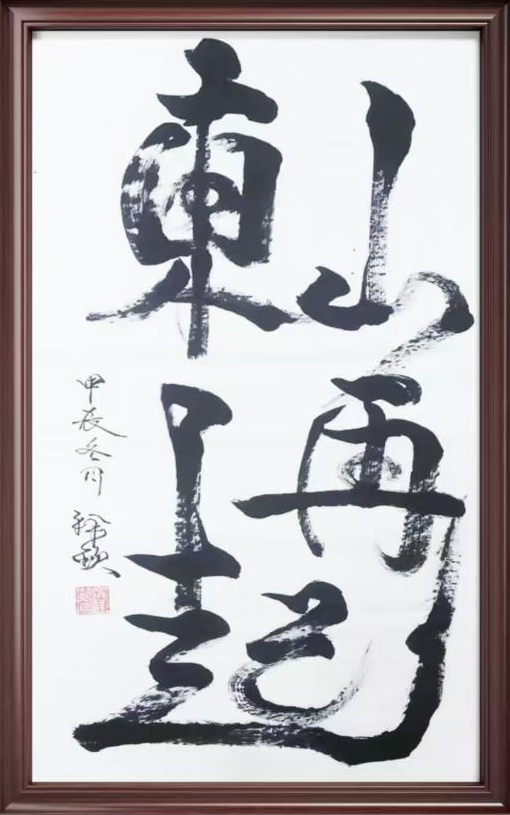 東山
再起
甲辰冬月